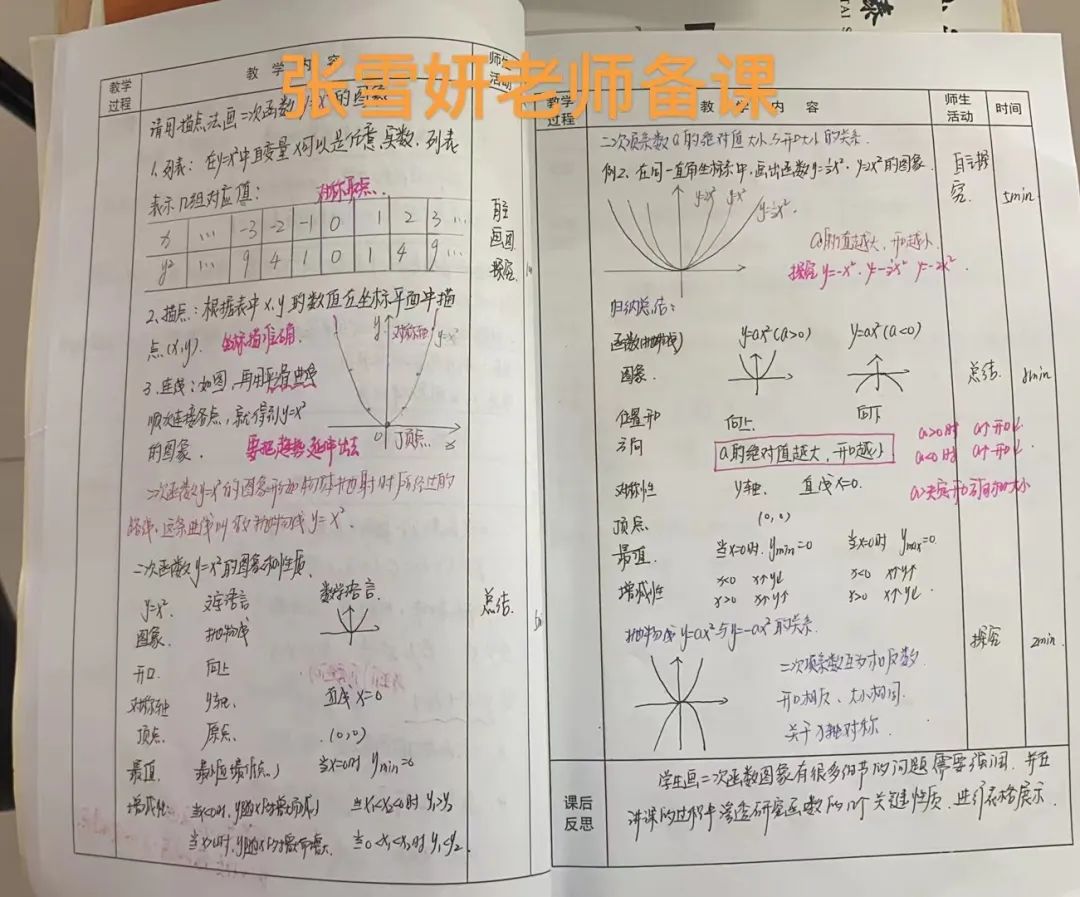 张雪妍老师备课
教学过程
教学内容
师生活动
请用描点法画二次函数y=x²的图象
1.列表:在y=x²中自变量x可以是任意实数,列表
表示几组对应值:
对称取点.
x … -3 -2 -1 0 1 2 3 …
y² … 9 4 1 0 1 4 9 …
自主画图探究
2.描点:根据表中x,y的数值在坐标平面中描
点(x,y). 坐标描准确.
3.连线:如图,再用平滑曲线
顺次连接各点,就得到y=x²
的图象. 要把趋势延伸出去
y 对称轴 y=x²
0 顶点 x
二次函数y=x²的图象形如物体抛射时所经过的
路线,这条曲线叫做抛物线y=x².
二次函数y=x²的图象和性质.
y=x². 文字语言 数学语言.
总结.
5m
图象. 抛物线
开口. 向上
对称轴 y轴. 直线x=0
顶点. 原点. (0,0)
最值. 最小值(最低点) 当x=0时 ymin=0
增减性 当x<0时,y随x的增大而减小 当x₁<x₂<0时 y₁>y₂
当x>0时,y随x的增大而增大. 当0<x₁<x₂时 y₁<y₂.
教学过程
教学内容
师生活动
时间
二次项系数a的绝对值大小与开口大小的关系.
例2、在同一直角坐标系中,画出函数y=½x²,y=2x²的图象
自主探究.
5min
y=2x² y=x² y=½x².
a的值越大,开口越小.
探究y=-x². y=-½x² y=-2x².
归纳总结:
函数(抛物线) y=ax²(a>0) y=ax²(a<0)
图象.
总结.
8min
位置开口方向 向上. 向下
a的绝对值越大,开口越小
a>0时 a↑开口↓
a<0时 a↑开口↓
对称性 y轴. 直线x=0.
a决定开口方向和大小
顶点. (0,0)
最值. 当x=0时.ymin=0 当x=0时 ymax=0
增减性 x<0 x↑y↓ x<0 x↑y↑
x>0 x↑y↑ x>0 x↑y↓.
抛物线y=ax²与y=-ax²的关系.
探究
2min
二次项系数互为相反数.
开口相反、大小相同.
关于x轴对称.
课后反思
学生画二次函数图象有很多细节的问题需要强调.并在
讲课的过程中渗透研究函数的几个关键性质.进行表格展示.